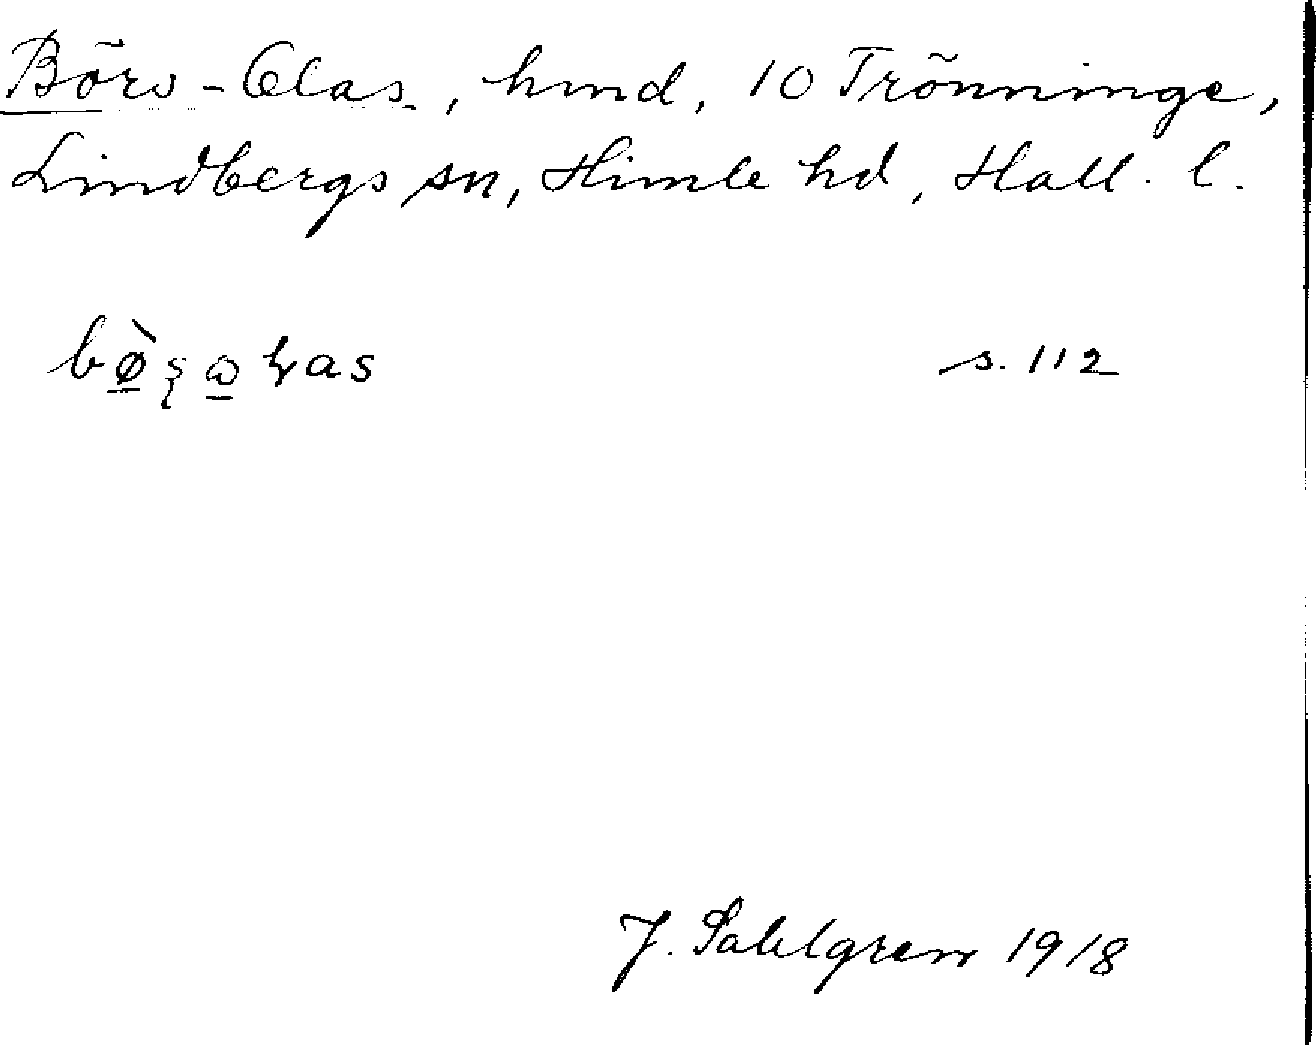 Börs-Olas, hmd, 10 Trönninge,
Lindbergs sn, Himle hd, Hall. l.
s. 112
J. Sahlgren 1918